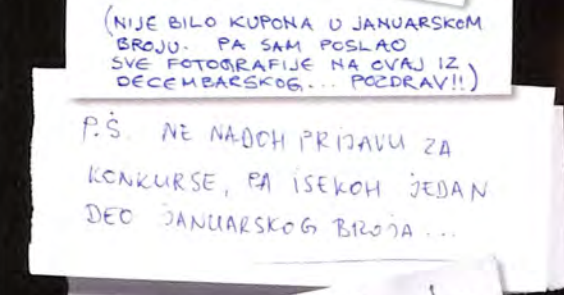 (NIJE BILO KUPONA U JANUARSKOM
BROJU. PA SAM POSLAO
SVE FOTOGRAFIJE NA OVAJ IZ
DECEMBARSKOG... POZDRAV!!)
P.Š. NE NAĐOH PRIJAVU ZA
KONKURSE, PA ISEKOH JEDAN
DEO JANUARSKOG BROJA...